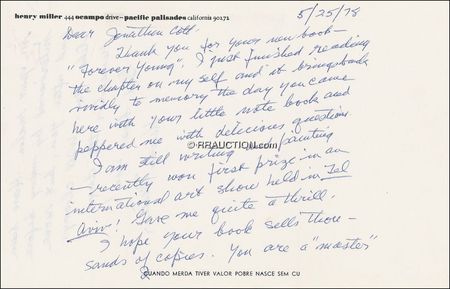 henry miller 444 ocampo drive–pacific palisades california 90272
5/25/78
Dear Jonathan Cott.
Thank you for your new book—
"Forever Young". I just finished reading
the chapter on my self and it brings back
vividly to memory the day you came
here with your little note book and
peppered me with delicious questions
I am still writing and painting
— recently won first prize in an
international art show held in Tel
Aviv! Gave me quite a thrill.
I hope your book sells thou-
sands of copies. You are a "master"
QUANDO MERDA TIVER VALOR POBRE NASCE SEM CU
© RRAUCTION.COM